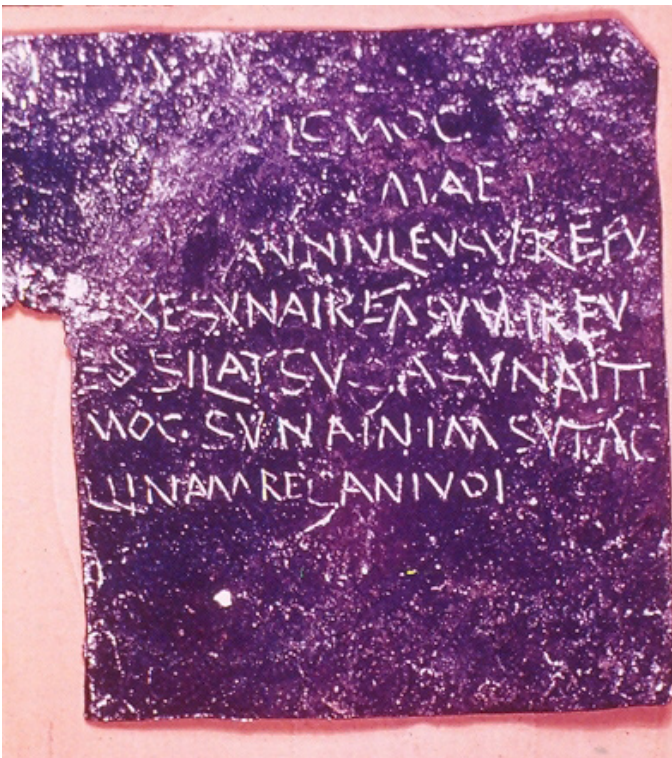 ANNIVLEVSVEREPV
XESVNAIREVSVNIREV
ES SILATSVGASVNAITI
MOC SVNAINIMSVTAC
LLINAMREGANIVOI